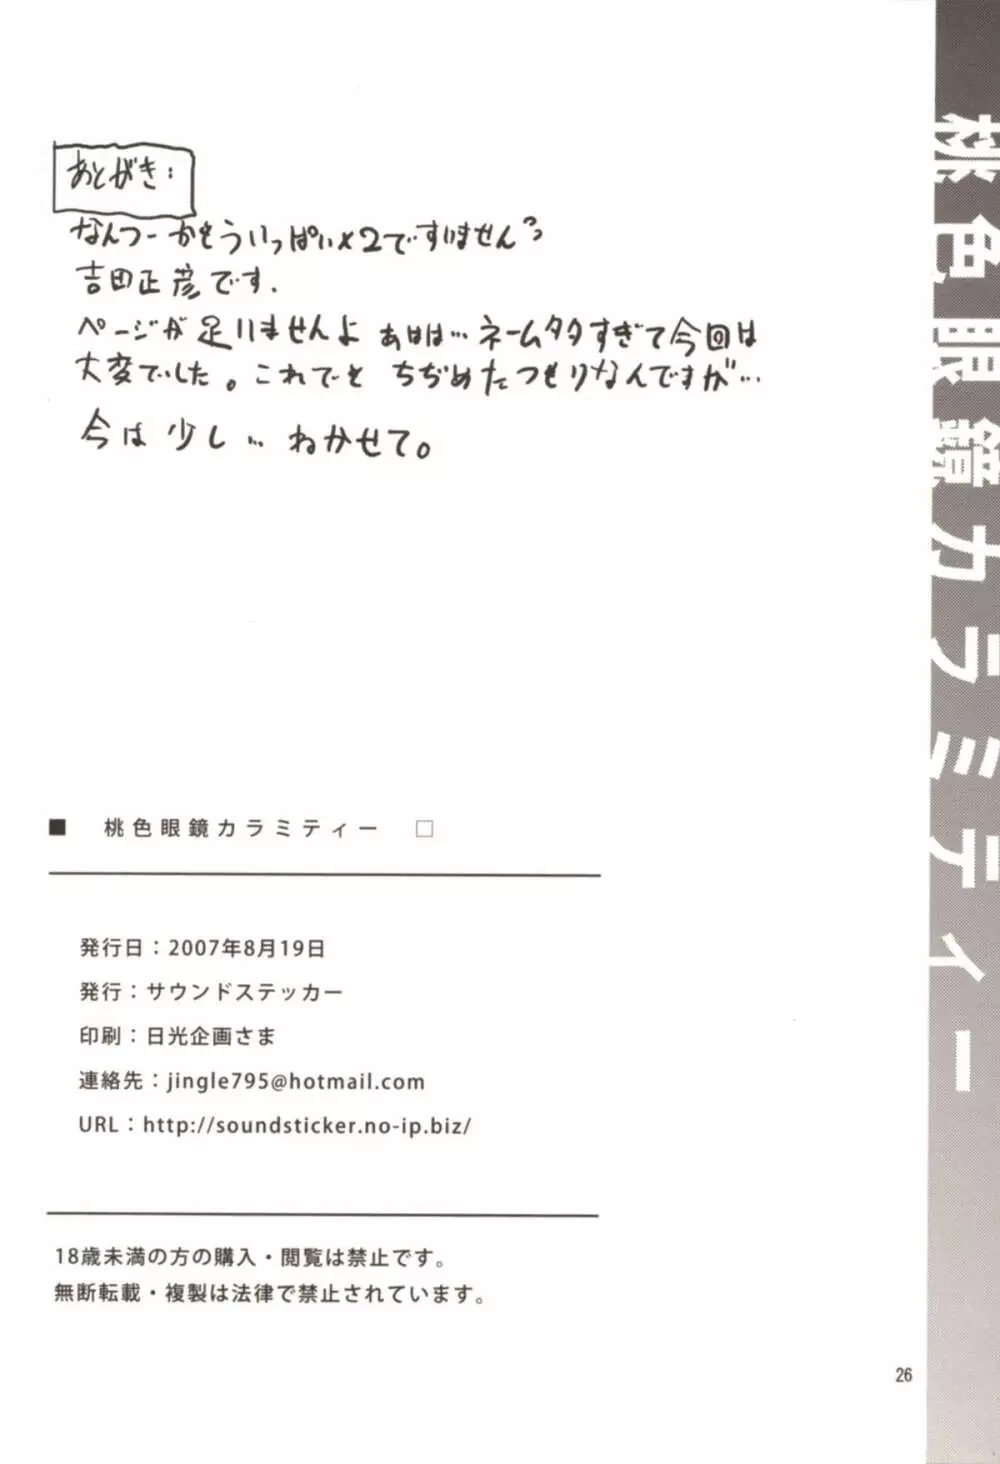 あとがき:
なんつーかもういっぱい×2ですいません
吉田正彦です.
ページが足りませんよ あはは…ネームタタすぎて今回は
大変でした。これでも ちぢめたつもりなんですが…
今は少し… ねかせて。
桃色眼鏡カラミティー
■ 桃色眼鏡カラミティー □
発行日:2007年8月19日
発行:サウンドステッカー
印刷:日光企画さま
連絡先:jingle795@hotmail.com
URL:http://soundsticker.no-ip.biz/
18歳未満の方の購入・閲覧は禁止です。
無断転載・複製は法律で禁止されています。
26